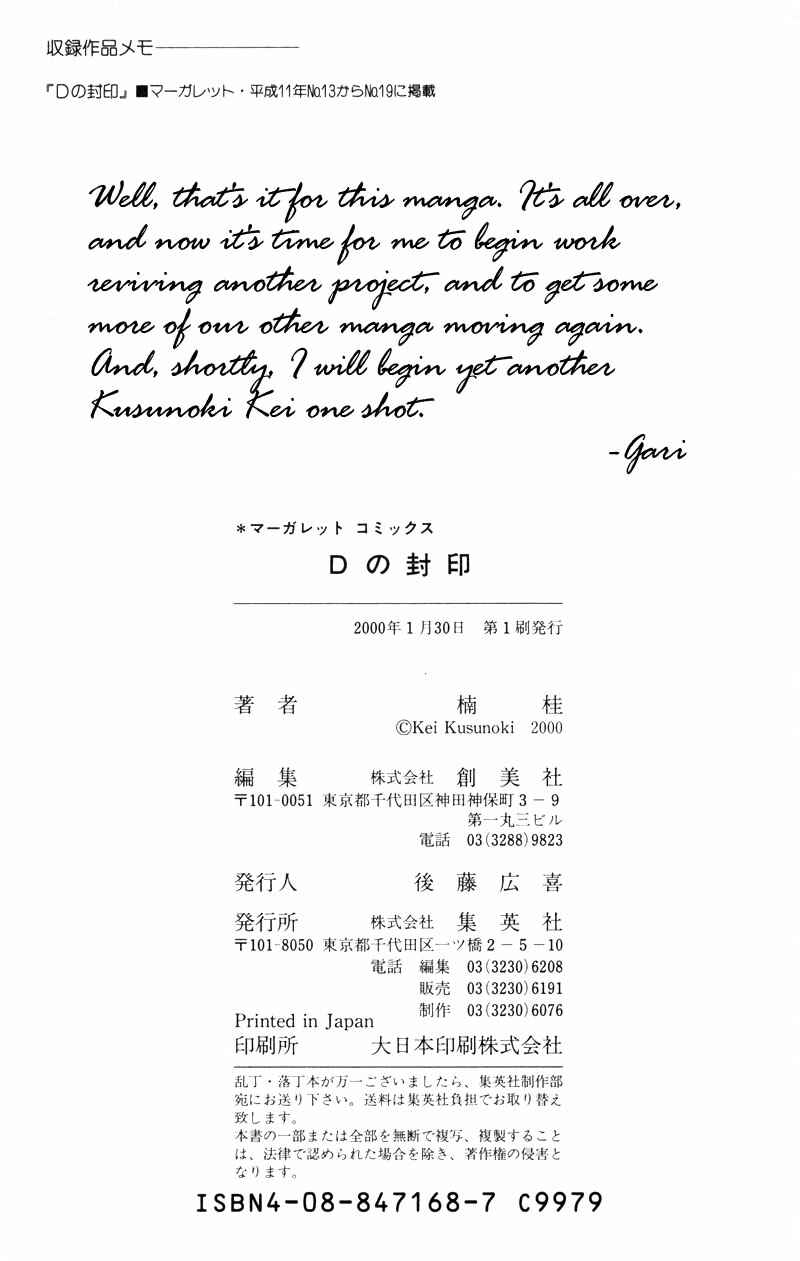 収録作品メモ
『Dの封印』■マーガレット・平成11年No.13からNo.19に掲載
Well, that's it for this manga. It's all over,
and now it's time for me to begin work
reviving another project, and to get some
more of our other manga moving again.
And, shortly, I will begin yet another
Kusunoki Kei one shot.
-Gari
*マーガレット コミックス
Dの封印
2000年1月30日 第1刷発行
著者 楠 桂
©Kei Kusunoki 2000
編集 株式会社 創美社
〒101-0051 東京都千代田区神田神保町3-9
第一丸三ビル
電話 03(3288)9823
発行人 後藤広喜
発行所 株式会社 集英社
〒101-8050 東京都千代田区一ツ橋2-5-10
電話 編集 03(3230)6208
販売 03(3230)6191
制作 03(3230)6076
Printed in Japan
印刷所 大日本印刷株式会社
乱丁・落丁本が万一ございましたら、集英社制作部
宛にお送り下さい。送料は集英社負担でお取り替え
致します。
本書の一部または全部を無断で複写、複製すること
は、法律で認められた場合を除き、著作権の侵害と
なります。
ISBN4-08-847168-7 C9979